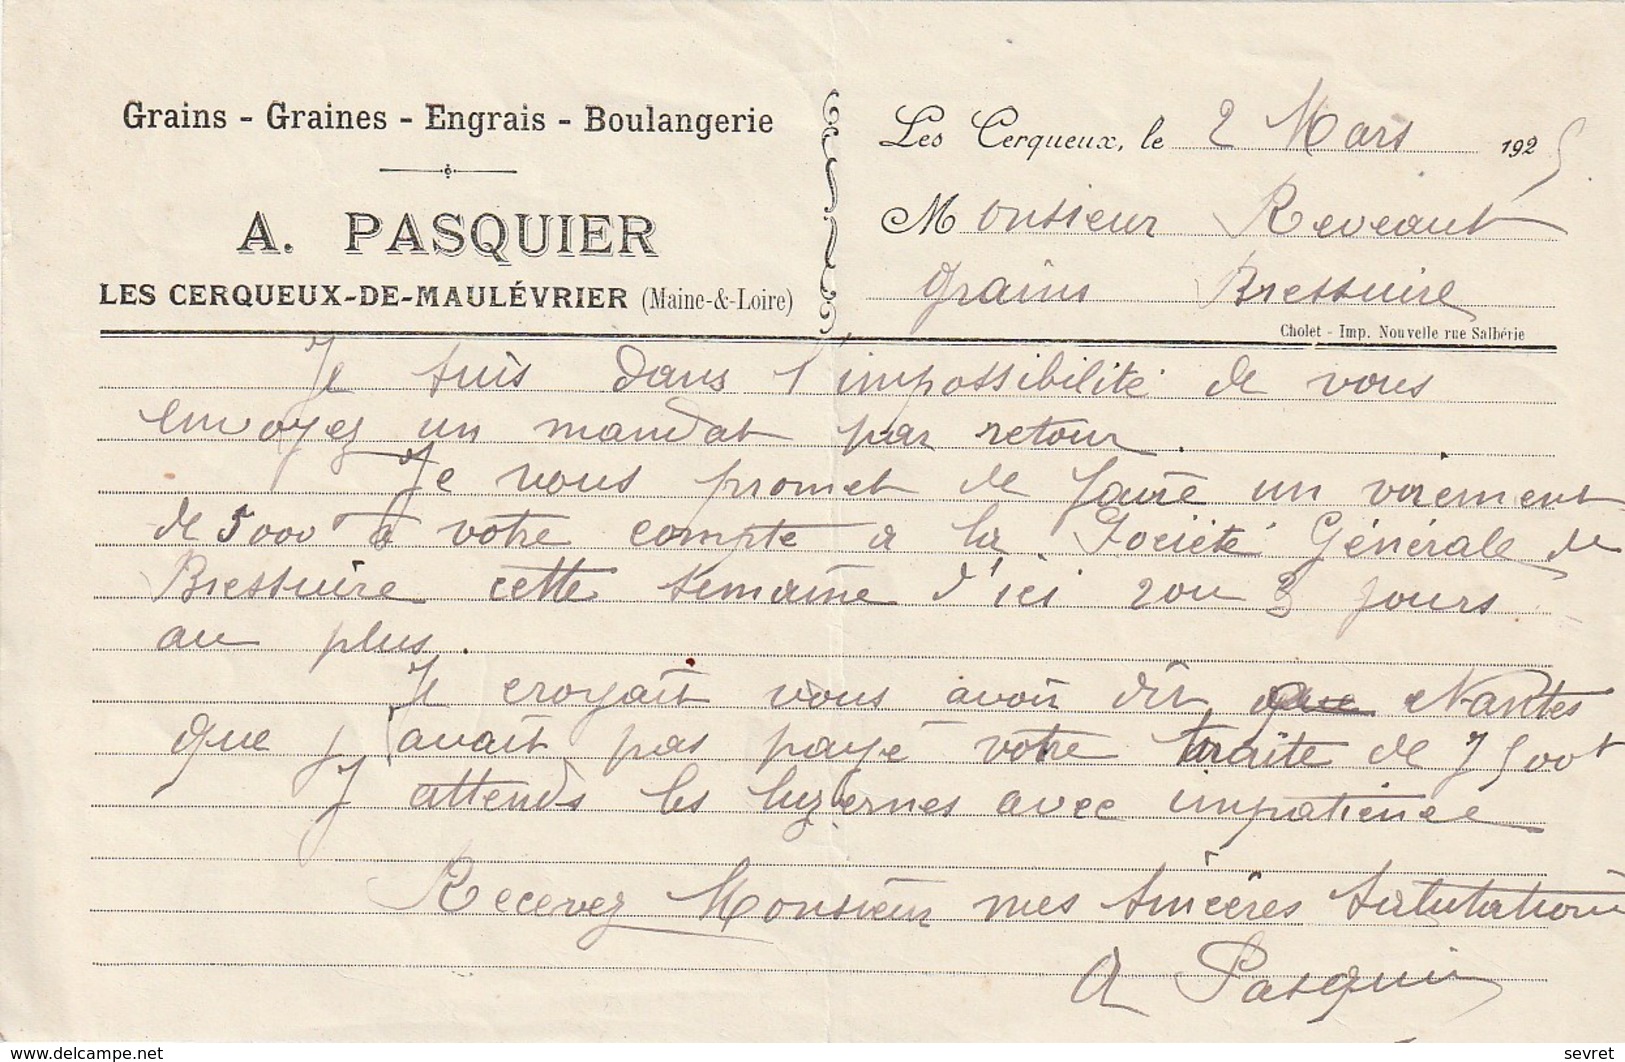 Grains - Graines - Engrais - Boulangerie
A. PASQUIER
LES CERQUEUX-DE-MAULÉVRIER (Maine-&-Loire)
Les Cerqueux, le 2 Mars 1925
Monsieur Reveaut
grains Bressuire
Cholet - Imp. Nouvelle rue Salbérie
Je suis dans l'impossibilité de vous
envoyez un mandat par retour.
Je vous promet de faire un virement
de 5000 à votre compte a la Société Générale de
Bressuire cette semaine d'ici 2 ou 3 jours
au plus.
Je croyait vous avoir dit que Nantes
que j'avait pas payé votre traite de 7500f
J attends les luzernes avec impatience
Recevez Monsieur mes sincères salutations
A Pasquier
delcampe.net
sevret